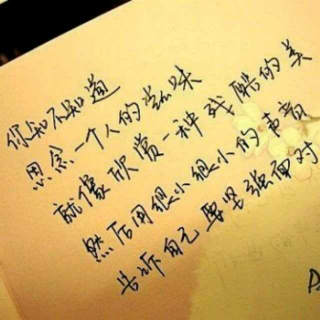 你知不知道
思念一个人的滋味
就像欣赏一种残酷的美
然后用很小很小的声音
告诉自己要坚强面对